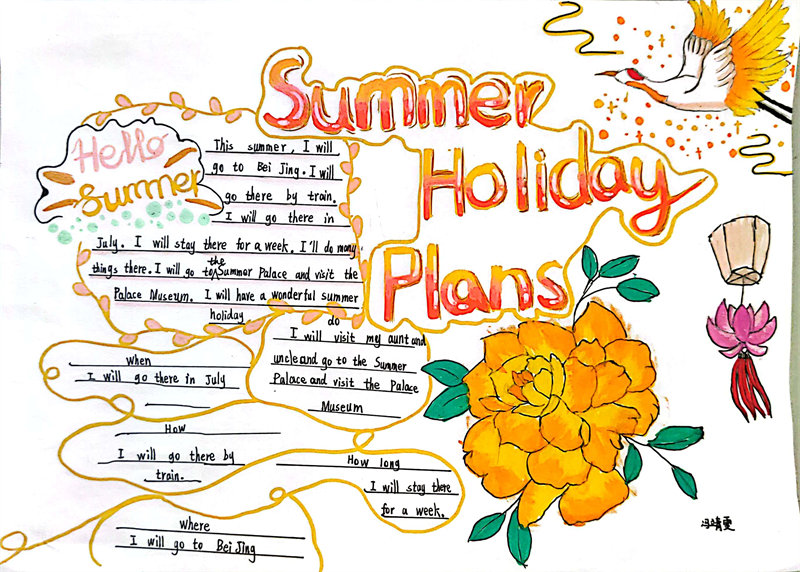 Summer
Holiday
Plans
Hello
Summer
This summer, I will
go to Bei Jing. I will
go there by train.
I will go there in
July. I will stay there for a week. I'll do many
things there. I will go to the Summer Palace and visit the
Palace Museum. I will have a wonderful summer
holiday
do
I will visit my aunt and
uncle and go to the Summer
Palace and visit the Palace
Museum
when
I will go there in July
How
I will go there by
train.
How long
I will stay there
for a week.
where
I will go to Bei Jing
冯靖雯